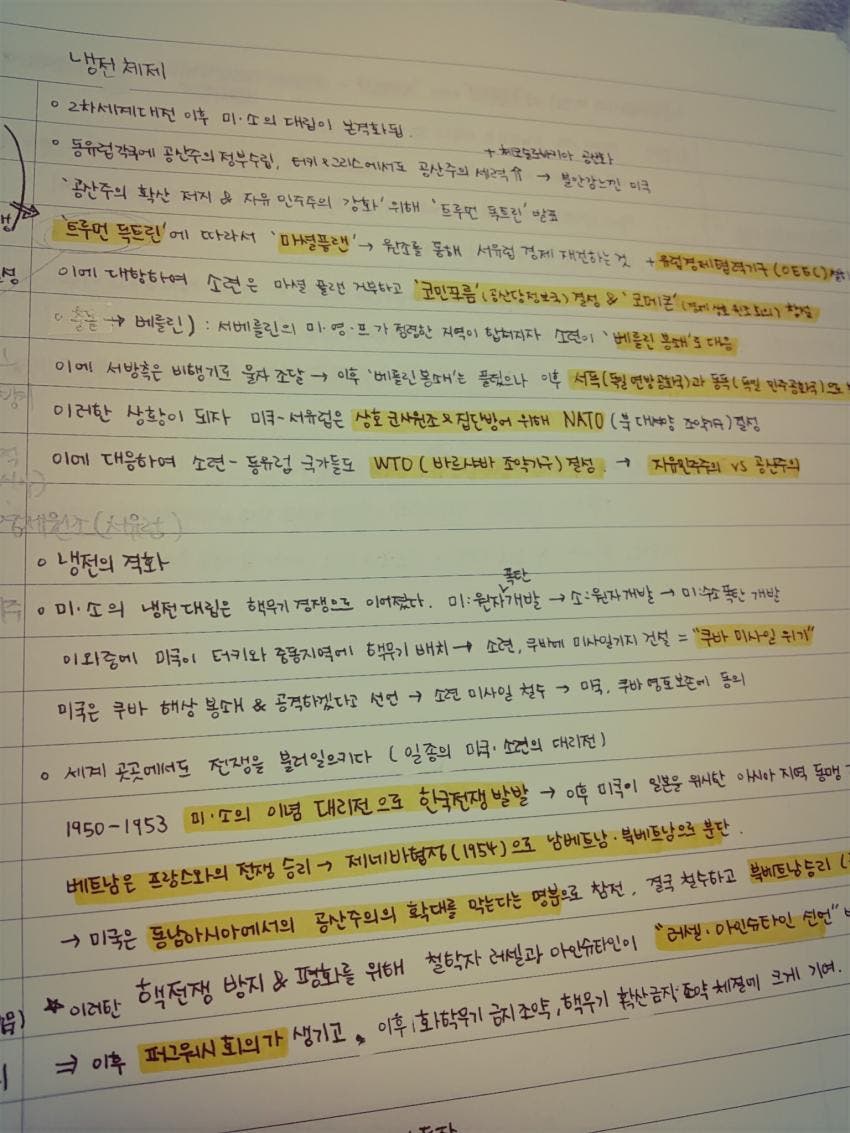 냉전 체제
○ 2차세계대전 이후 미·소의 대립이 본격화됨.
+ 체코슬로바키아 공산화
○ 동유럽각국에 공산주의정부수립, 터키&그리스에서도 공산주의 세력⇑ → 불안감느낀 미국
'공산주의 확산 저지 & 자유 민주주의 강화' 위해 '트루먼 독트린' 발표
'트루먼 독트린'에 따라서 '마셜플랜' → 원조를 통해 서유럽 경제 재건하는 것 + 유럽경제협력기구(OEEC)
이에 대항하여 소련은 마셜 플랜 거부하고 '코민포름'(공산당정보국) 결성 & '코메콘'
○ 충돌 → 베를린) : 서베를린의 미·영·프가 점령한 지역이 합쳐지자 소련이 '베를린 봉쇄'로 대응
이에 서방측은 비행기로 물자 조달 → 이후 '베를린 봉쇄'는 풀렸으나 이후 서독(독일연방공화국)과 동독(독일 민주공화국)으로
이러한 상황이 되자 미국-서유럽은 상호 군사원조&집단방어 위해 NATO (북대서양 조약기구) 결성
이에 대응하여 소련-동유럽 국가들도 WTO (바르샤바 조약기구) 결성. → 자유민주주의 vs 공산주의
경제원조(서유럽)
○ 냉전의 격화
폭탄
○ 미·소의 냉전대립은 핵무기 경쟁으로 이어졌다. 미:원자개발 → 소:원자개발 → 미:수소폭탄 개발
이외중에 미국이 터키와 중동지역에 핵무기 배치 → 소련, 쿠바에 미사일기지 건설 = "쿠바 미사일 위기"
미국은 쿠바 해상 봉쇄 & 공격하겠다고 선언 → 소련 미사일 철수 → 미국, 쿠바영토보존에 동의
○ 세계 곳곳에서도 전쟁을 불러일으키다 (일종의 미국·소련의 대리전)
1950-1953 미·소의 이념 대리전으로 한국전쟁발발 → 이후 미국이 일본을 위시한 아시아 지역 동맹
베트남은 프랑스와의 전쟁 승리 → 제네바협정(1954)으로 남베트남·북베트남으로 분단.
→ 미국은 동남아시아에서의 공산주의의 확대를 막는다는 명분으로 참전, 결국 철수하고 북베트남승리
☆ 이러한 핵전쟁 방지 & 평화를 위해 철학자 러셀과 아인슈타인이 "러셀·아인슈타인 선언"
⇒ 이후 퍼그워시 회의가 생기고, 이후 화학무기 금지조약, 핵무기 확산금지 조약 체결에 크게 기여.